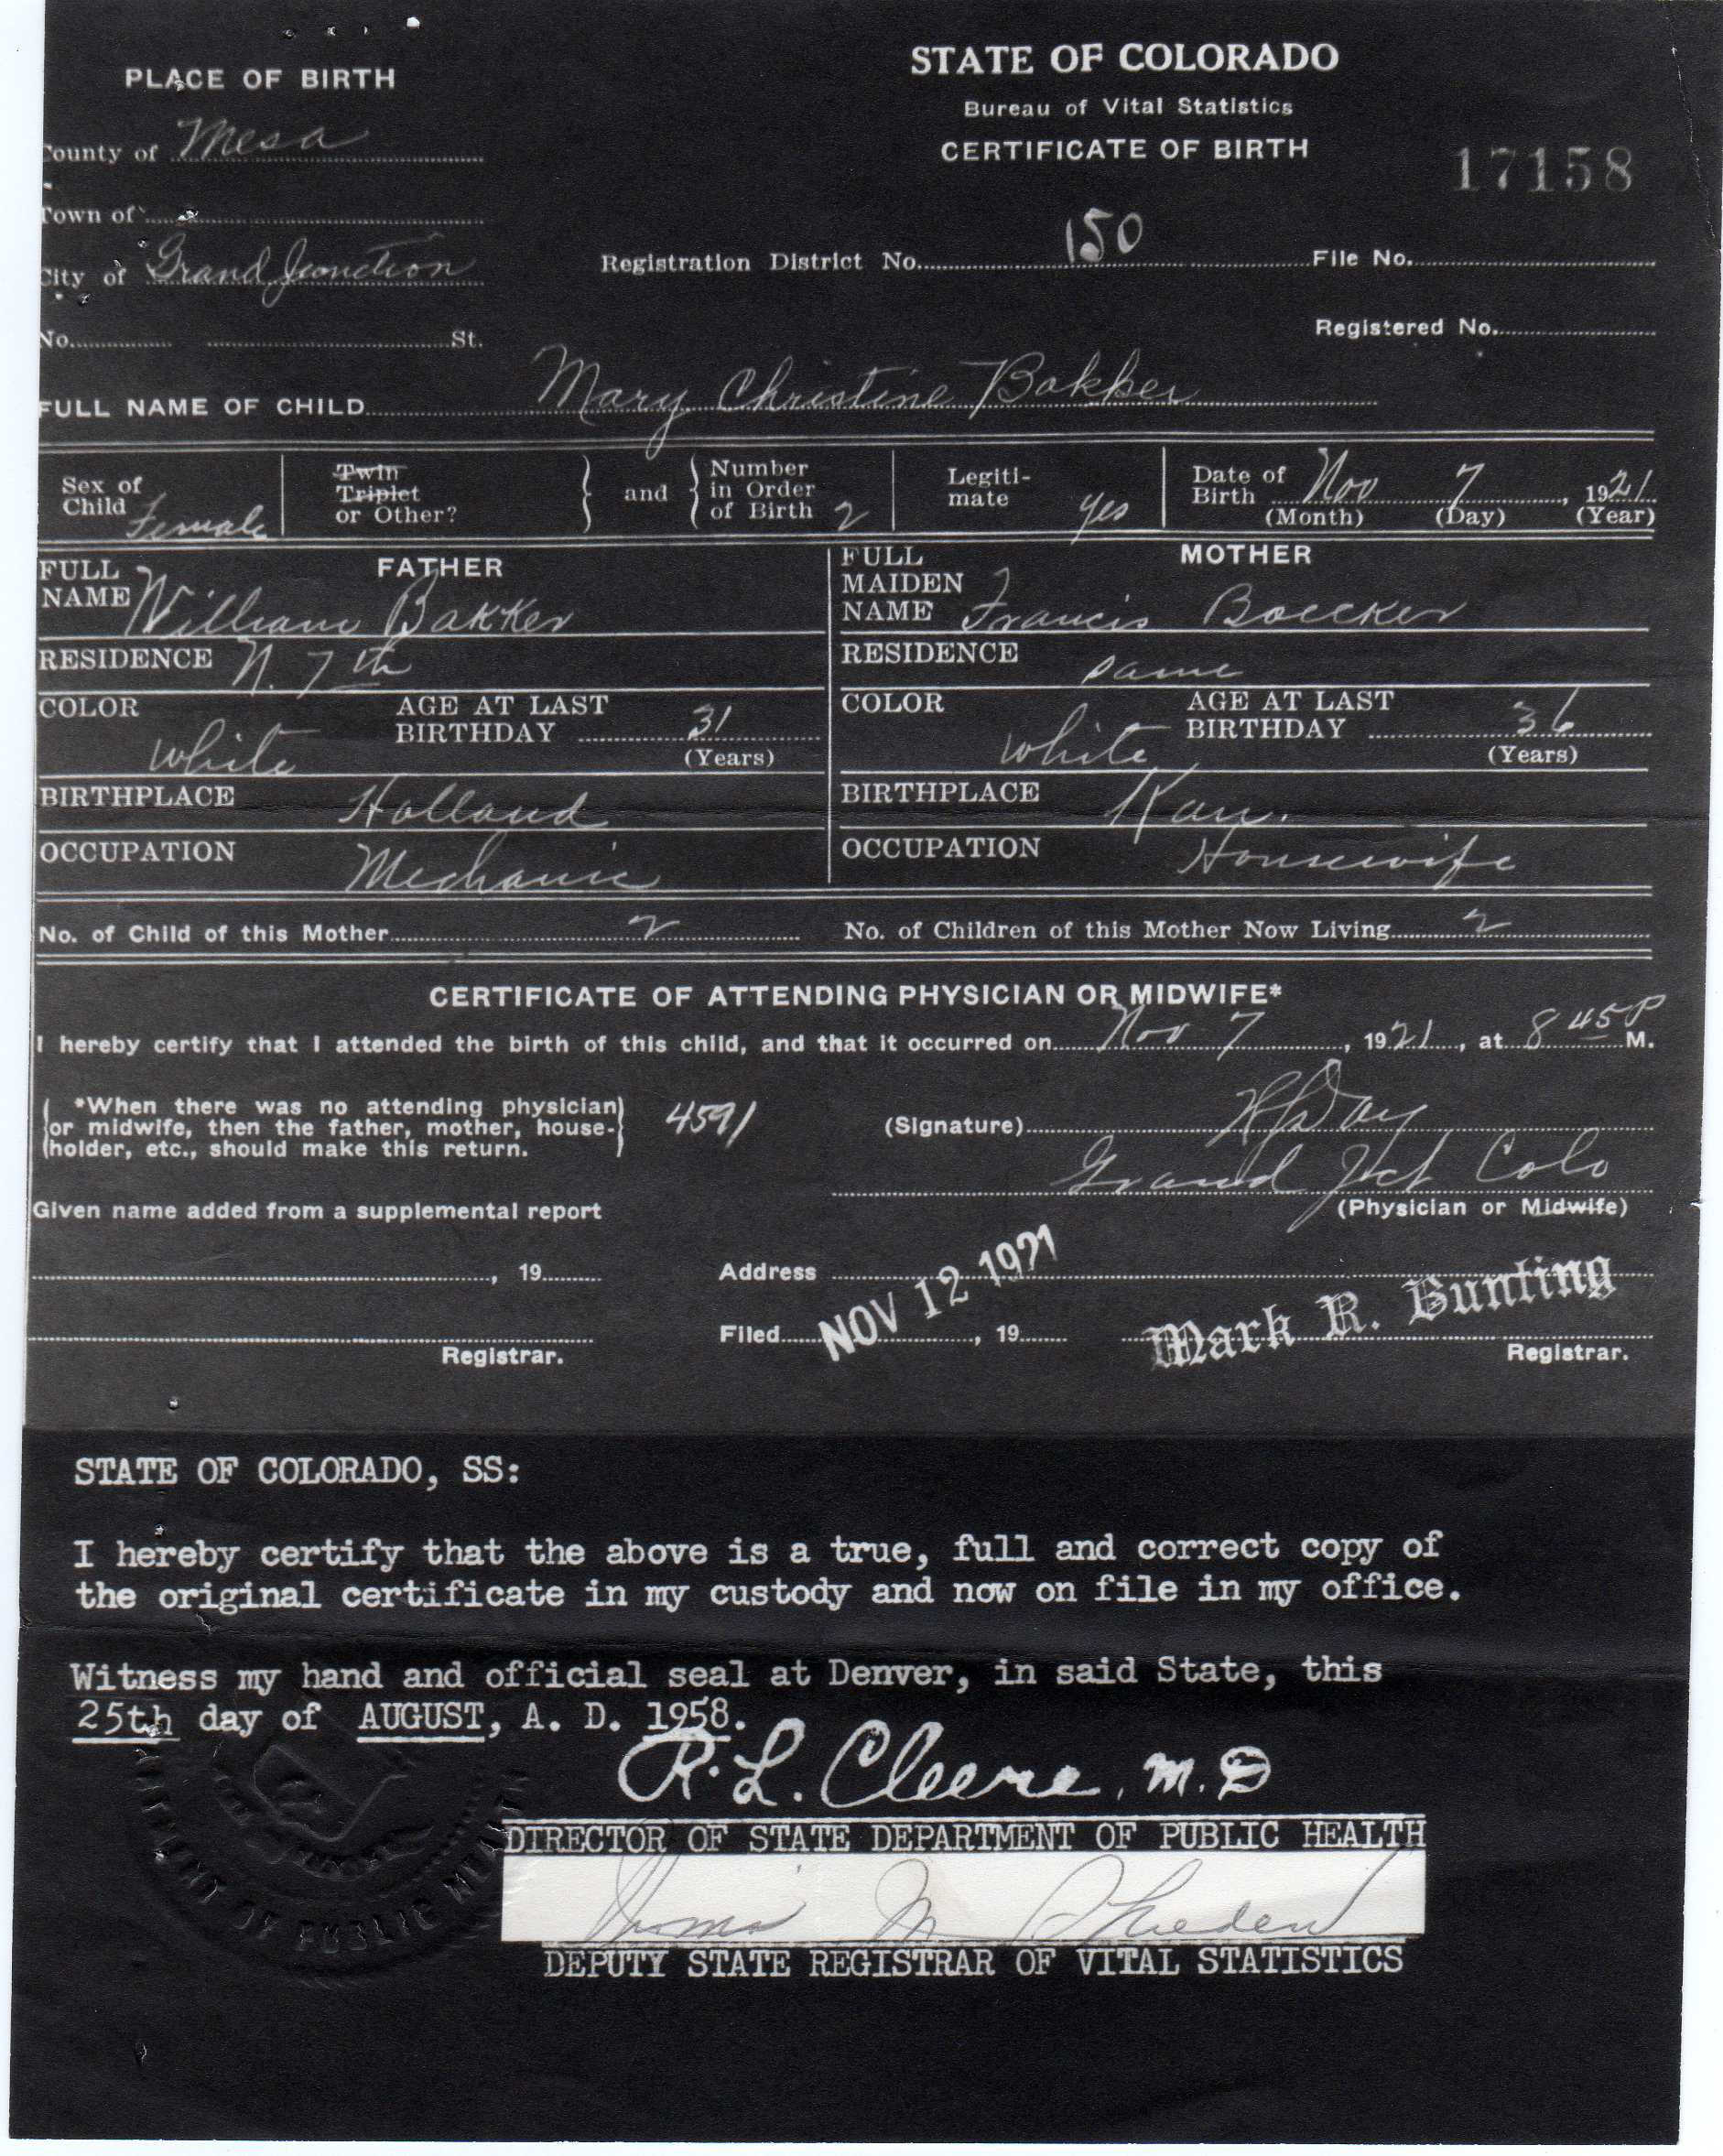 PLACE OF BIRTH
County of Mesa
Town of
City of Grand Junction
No. St.
STATE OF COLORADO
Bureau of Vital Statistics
CERTIFICATE OF BIRTH
17158
Registration District No. 150 File No.
Registered No.
FULL NAME OF CHILD Mary Christine Bakker
Sex of Child Female
Twin Triplet or Other? and Number in Order of Birth 2
Legitimate yes
Date of Birth Nov 7, 1921
(Month) (Day) (Year)
FATHER
FULL NAME William Bakker
RESIDENCE N. 7th
COLOR white AGE AT LAST BIRTHDAY 31 (Years)
BIRTHPLACE Holland
OCCUPATION Mechanic
MOTHER
FULL MAIDEN NAME Francis Boecker
RESIDENCE same
COLOR white AGE AT LAST BIRTHDAY 36 (Years)
BIRTHPLACE Kan.
OCCUPATION Housewife
No. of Child of this Mother 2 No. of Children of this Mother Now Living 2
CERTIFICATE OF ATTENDING PHYSICIAN OR MIDWIFE*
I hereby certify that I attended the birth of this child, and that it occurred on Nov 7, 1921, at 8 45 P M.
*When there was no attending physician
or midwife, then the father, mother, house-
holder, etc., should make this return.
4591
(Signature) Day
Grand Jct Colo
(Physician or Midwife)
Given name added from a supplemental report
, 19
Registrar.
Address
Filed NOV 12 1921, 19
Mark R. Bunting
Registrar.
STATE OF COLORADO, SS:
I hereby certify that the above is a true, full and correct copy of
the original certificate in my custody and now on file in my office.
Witness my hand and official seal at Denver, in said State, this
25th day of AUGUST, A. D. 1958.
R. L. Cleere, M.D
DIRECTOR OF STATE DEPARTMENT OF PUBLIC HEALTH
DEPUTY STATE REGISTRAR OF VITAL STATISTICS
OF PUBLIC HEALTH